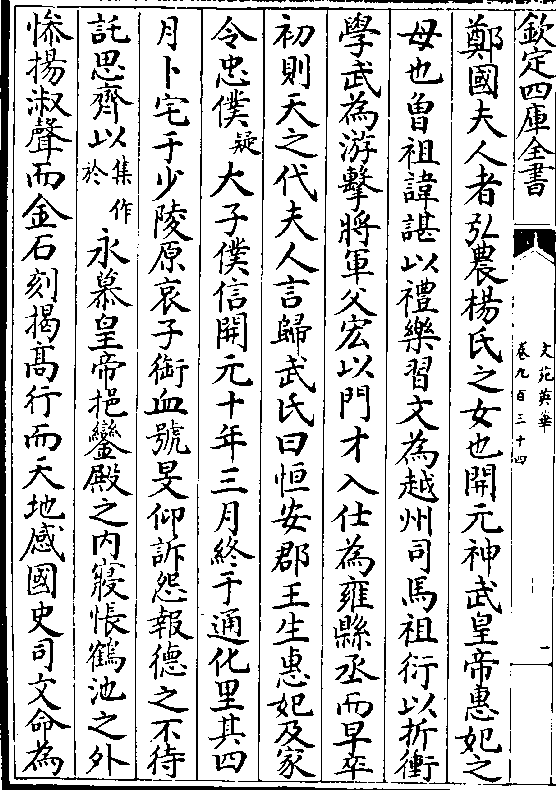 欽定四庫全書
文苑英華
卷九百三十四
一
鄭國夫人者弘農楊氏之女也開元神武皇帝惠妃之
母也曾祖諱諶以禮樂習文為越州司馬祖衍以折衝
學武為游擊將軍父宏以門才入仕為雍縣丞而早卒
初則天之代夫人言歸武氏曰恒安郡王生惠妃及家
令忠僕疑大子僕信開元十年三月終于通化里其四
月卜宅于少陵原哀子銜血號旻仰訴怨報德之不待
託思齊以集作於永慕皇帝挹鑾殿之内寢悵鶴池之外
惨揚淑聲而金石刻揭髙行而天地感國史司文命為